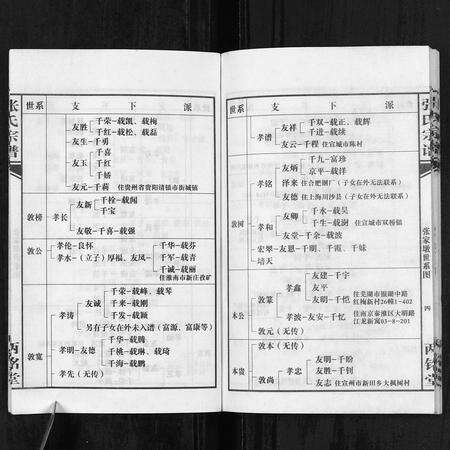 张氏宗谱
世系 支 下 派
友胜 千荣—载凯、载梅
千红—载松、载磊
友生—千勇
友玉 千喜
千红
千娇
友元—千莉 住贵州省贵阳清镇市街城镇
敦榜 孝长 友新 千栓—载闯
千宝
友敬—千喜—载强
敦公 孝伦—良怀
孝水—(立子)厚福、友凤 千华—载芬
千军—载青
千诚—载丽
住淮南市新庄孜矿
敦宽 孝涛 友诚 千荣—载峰、载琴
千来—载刚
千发—载颖
另有子女在外未入谱(富源、富康等)
孝明—友德 千华—载腾
千桃—载琳、载琦
千海—载鹏
孝先(无传)
两铭堂
世系 支 下 派
孝谱 友祥 千双—载正、载辉
千进—载续
友云—千程 住宣城市陈村
敦树 孝铭 友炳 千九—富珍
京平—载祥
泽来 住合肥钢厂(子女在外无法联系)
友德 住上海川沙县(子女在外无法联系)
孝和 友卿 千水—载吴
千生—载澜 住宣城市双桥镇
友堂—千余—载波
宏翠—友恩—千明、千霞、千妹
培天
本公 敦篆 孝鑫 友建—千宇
友平
友明—千恺 住芜湖市银湖中路
红梅新村26幢41-102
孝波—友安—千忆 住南京秦淮区大明路
江龙新寓03-8-201
敦元(无传)
本贵 敦本(无传)
敦尚 孝忠 友明—千盼
友胜—千钊
友志 住宣州市新田乡大枫树村
张氏宗谱
张家墩世系图
四
两铭堂